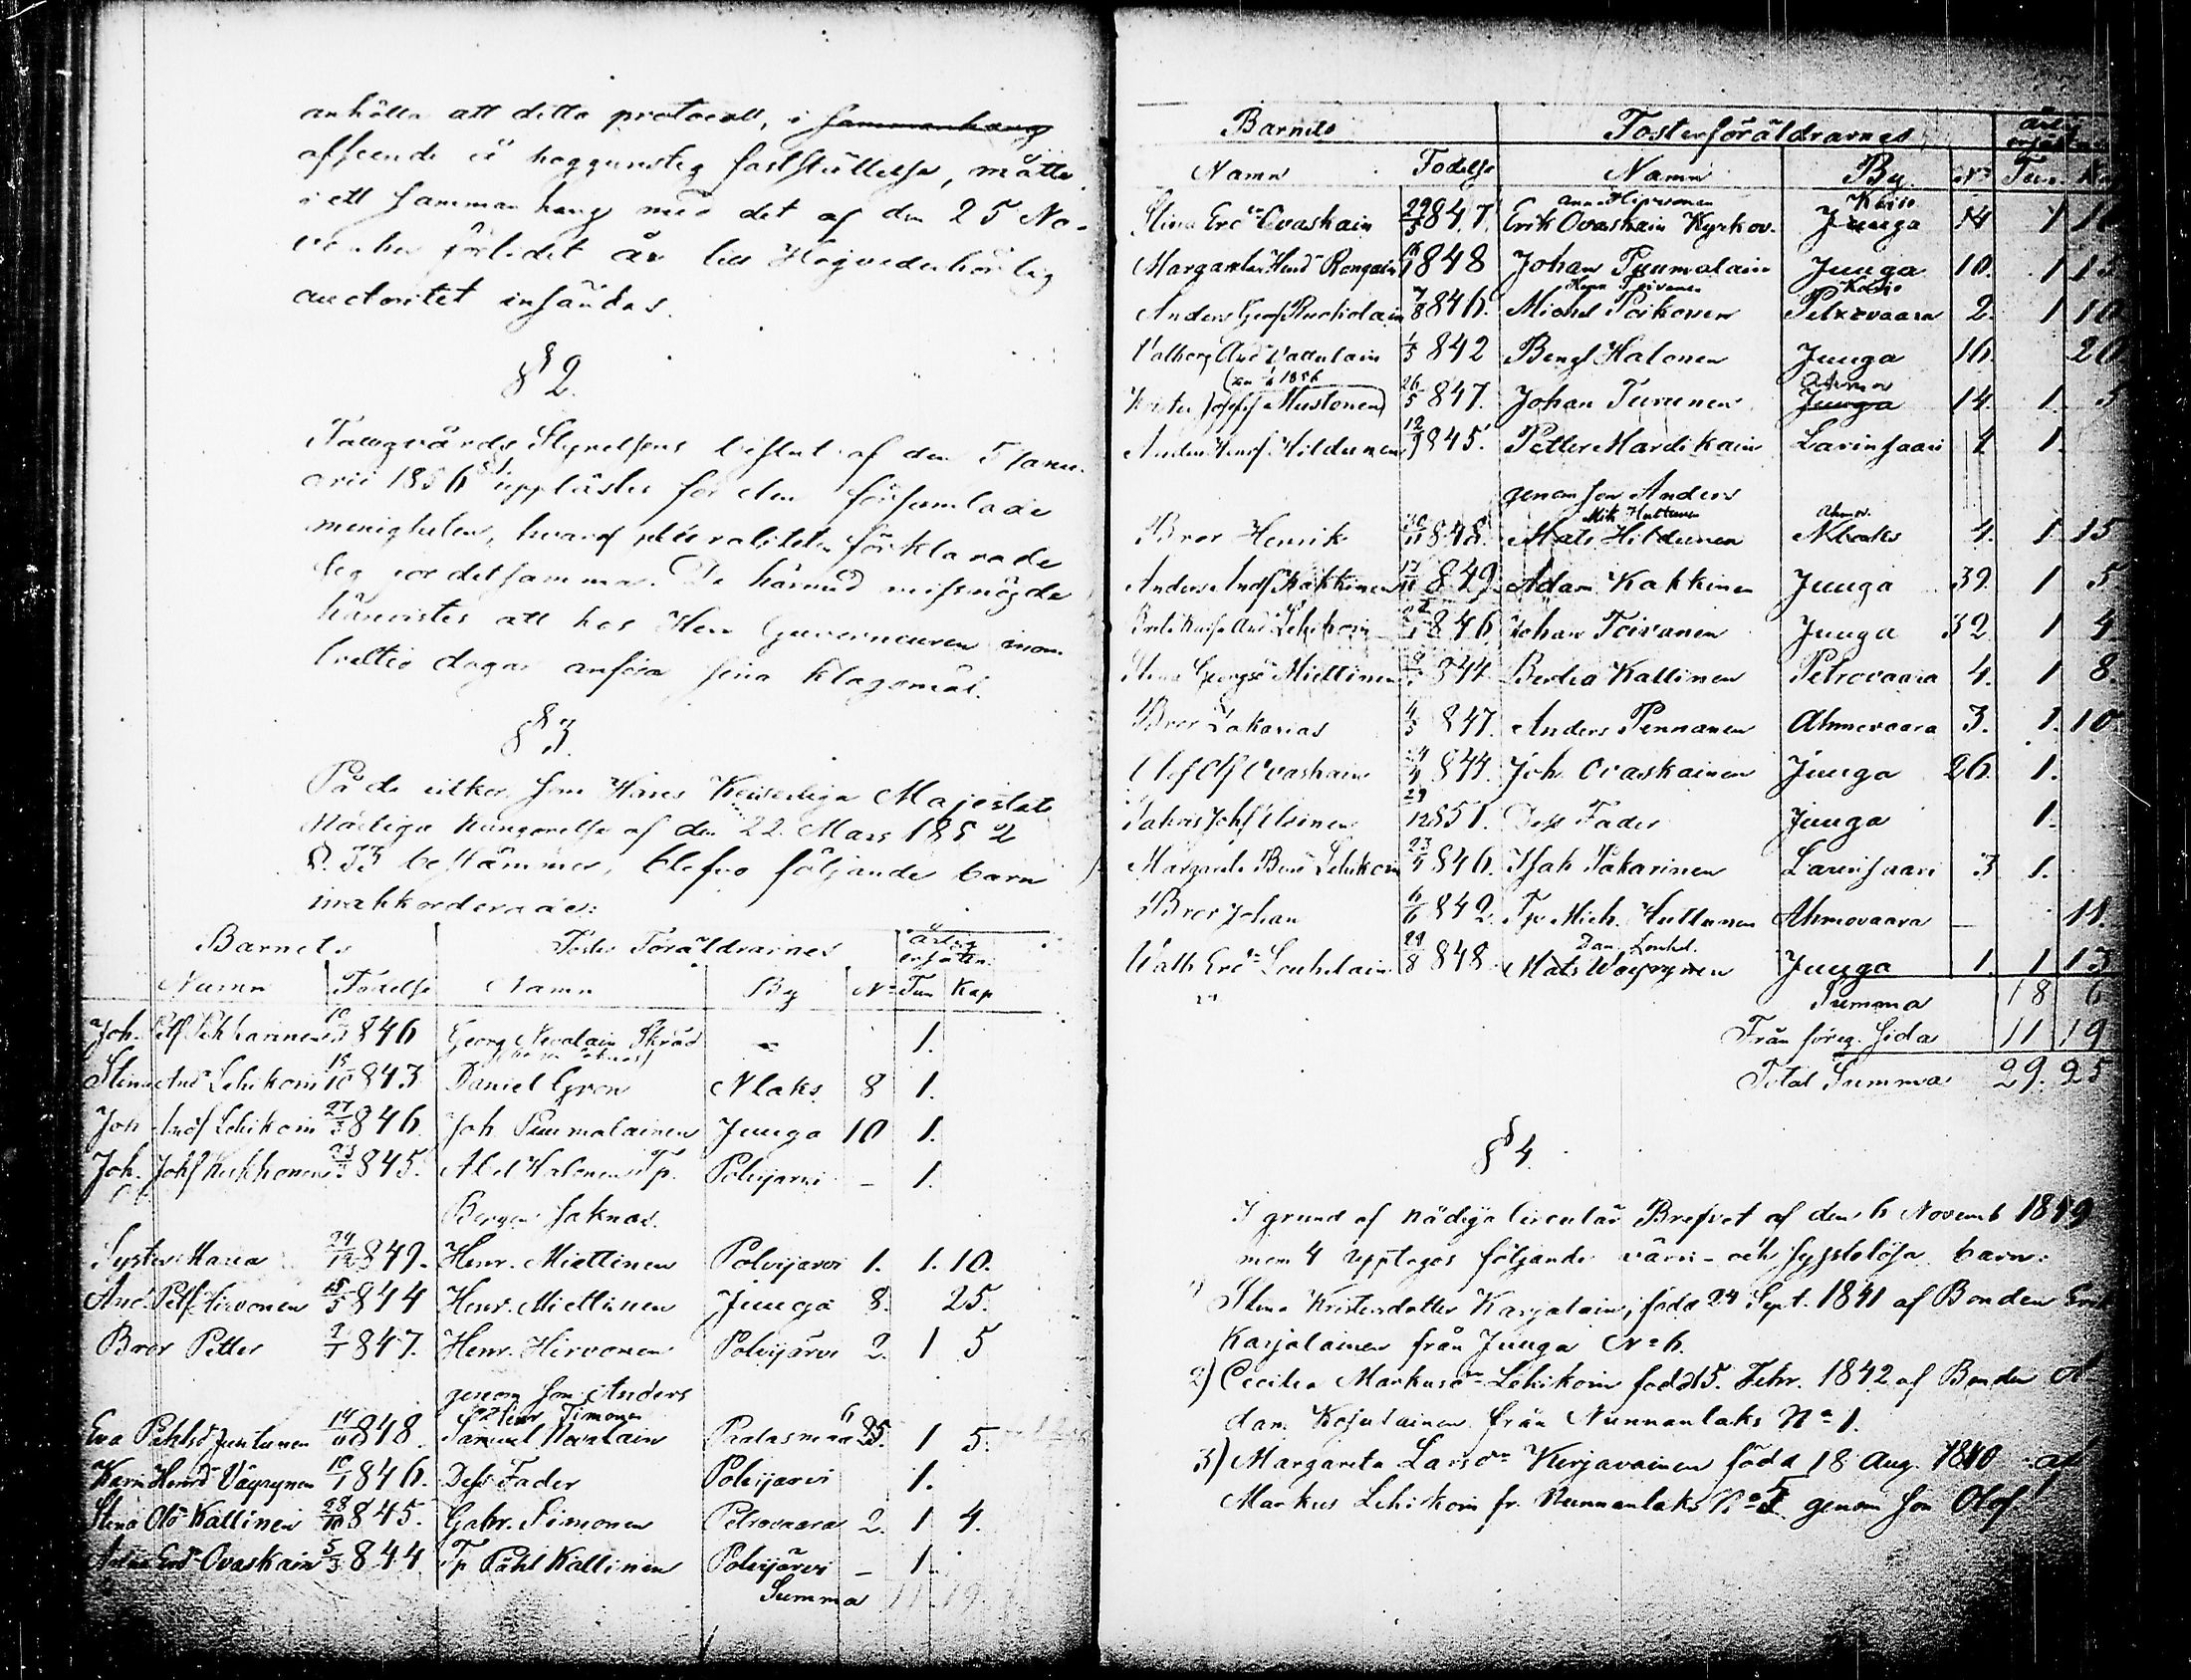 anhölla att ditta protocoll, i sammanhang
afseende å höggunstig fastställelse, måtte
i ett sammanhang med det af den 25 No-
vember förlidet år till Högvederbörlig
auctoritet insändas.
§ 2.
Fattigvårds Styrelsens beslut af den 5 Janu-
arii 1856 upplästes för den församlade
menigheten, hvaraf pluraliteten förklarade
sig för detsamma. De härmed missnögde
hänvistes att hos Herr Guverneuren inom
trettio dagar anföra sina klagomål.
§ 3.
På de vilkor som Hans Keiserliga Majestäts
Nådiga Kungörelse af den 22 Mars 1852
§. 33 bestämmer, blefvo följande barn
inackorderade:
Barnets Foster Föräldrarnes årlig ersättn.
Namn Födelse Namn By No Tun Kap
Joh. Petss Pekkarinen 10 846 Georg Nevalain Skräd – 1.
Stina Andr Lehikoin 15/10 843 Daniel Gron Nlaks 8 1.
Joh Andss Lehikoin 27/3 846. Joh. Puumalainen Juuga 10 1.
Joh. Johss Kukkonen 23 845. Abel Halonen Tp. Polvijarvi – 1.
Bergen saknas.
Syster Maria 24/12 849. Henr. Miettinen Polvijarvi 1. 1. 10.
And. Petss Hirvonen 15/5 844 Henr. Miettinen Juuga 8. 25.
Bror Petter 847. Henr. Hirvonen Polvijärvi 2. 1 5
genom son Anders
Henr Timonen
Eva Påhlsd Juntunen 14 848. Samuel Nevalain Paalasmaa 6 25. 1 5.
Karin Henrsd Väyrynen 10/1 846. Dess Fader Polvijarvi 1.
Stina Olsd Kallinen 28/10 845. Gabr. Simonen Petrovaara 2. 1 4.
Ersd Ovaskain 5/3 844 Tp Påhl Kallinen Polvijärvi – 1.
Summa 11. 19.
Barnets Fosterföräldrarnes årl ersätt
Namn Födelse Namn By No Tun Kap
Anna Hipponen Kuiso
Stina Ersd Ovaskain 29/5 847. Erik Ovaskain Kyrkov. Juuga 14 1 10
Margareta Hensd Rongain 848 Johan Puumalain Juuga 10. 1 15
Henr Toivanen
Anders Geoss Ruokolain 7/8 846. Michel Poikonen Petrovaara 2. 1 10
Valborg And Vatulain 1/3 842 Bengt Halonen Juuga 16. 20
1856
Josefss Mustonen 26/5 847. Johan Turunen Juuga 14. 1. 5
Anders Henss Hildunen 12/9 845. Petter Mardikain Larinsaari 4 1.
genom son Anders
Mik Huttunen Ahmov.
Bror Henrik 30/11 848. Mats Hildunen Nlaks 4. 1 15
Anders Andss Kakkinen 17/11 849. Adam Kakkinen Juuga 39. 1 5
Lehikoin 846 Johan Toivanen Juuga 32. 1 4.
Stina Georgsd Miettinen 844. Bertta Kallinen Petrovaara 4. 1 8.
Bror Zakarias 4/5 847. Anders Pennanen Ahmovaara 3. 1. 10
Olof Olss Ovaskain 24/4 844. Joh Ovaskainen Juuga 26. 1.
Johss Utrinen 29/12 851. Dess Fader Juuga 1.
Margareta Lehikoin 23/4 846. Isak Pakarinen Larinsaari 3 1.
Bror Johan 6/6 842. Tp Mich. Huttunen Ahmovaara – 11.
Dan. Louhel.
Walb Ersd Louhelain 29/8 848. Mats Wäyrynen Juuga 1. 1 13
Summa 18 6
Från föreg. Sida 11 19
Total Summa 29. 25
§ 4.
I grund af nådiga circulär Brefvet af den 6 Novemb 1849
mom 4 upptogos följande värn- och sysslolösa barn:
1) Stina Kristersdotter Karjalain, född 24 Sept. 1841 af Bonden Erik
Karjalainen från Juuga No 6.
2) Cecilia Markusdr Lehikoin född 15. Febr. 1842 af Bonden A
dam Kojulainen från Nunnanlaks No 1.
3) Margareta Larsdr Kurjavainen född 18 Aug. 1840 af
Markus Lehikoin fr. Nunnanlaks No 5. genom son Olof